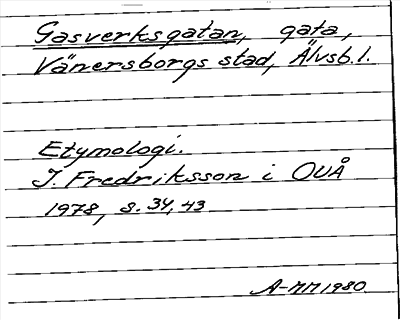 Gasverksgatan, gata,
Vänersborgs stad, Älvsb.l.
Etymologi.
I. Fredriksson i OUÅ
1978, s. 34, 43
A-MM 1980.